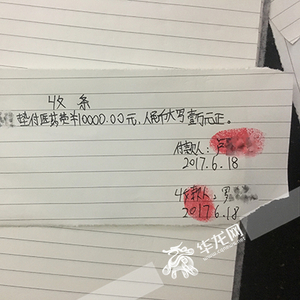 收条
垫付医药费¥10000.00元,人民币大写壹万元正。
付款人:卢
2017.6.18
收款人:罗
2017.6.18
华龙网